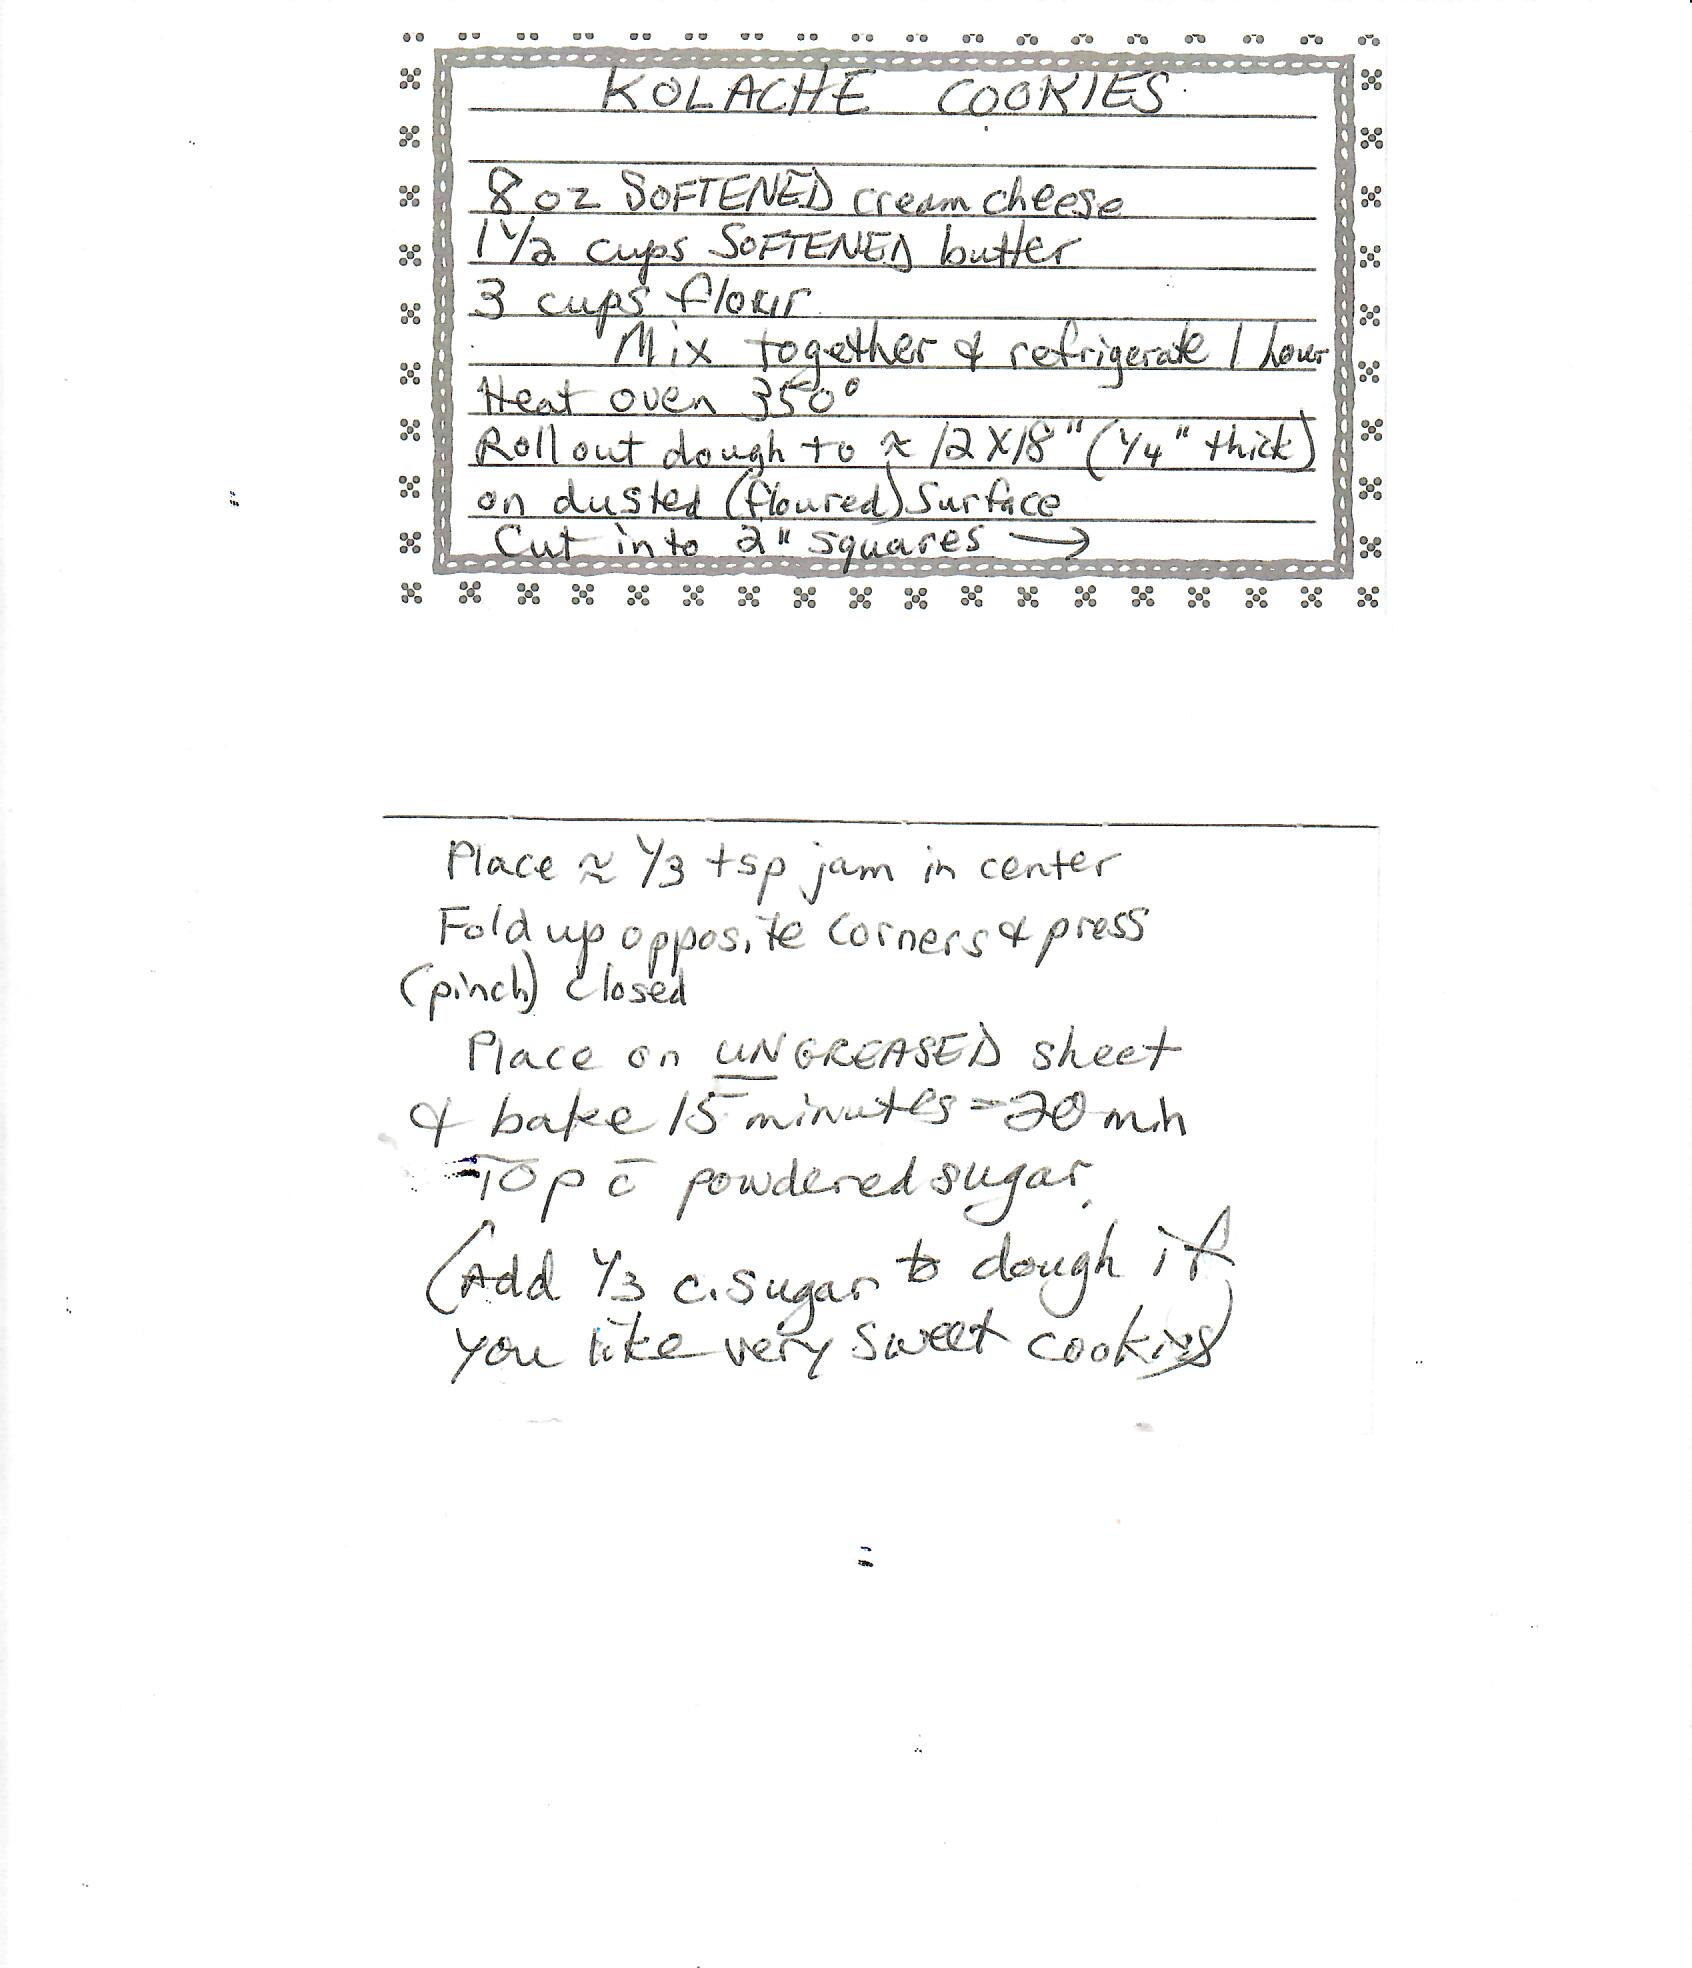 KOLACHE COOKIES
8 oz SOFTENED cream cheese
1 1/2 cups SOFTENED butter
3 cups flour
Mix together & refrigerate 1 hour
Heat oven 350°
Roll out dough to ≈ 12 X 18" (1/4" thick)
on dusted (floured) surface
Cut into 2" squares →
Place ≈ 1/3 tsp jam in center
Fold up opposite corners & press
(pinch) closed
Place on UNGREASED sheet
& bake 15 minutes - 20 min
Top c̄ powdered sugar
(Add 1/3 c. sugar to dough if
you like very sweet cookies)